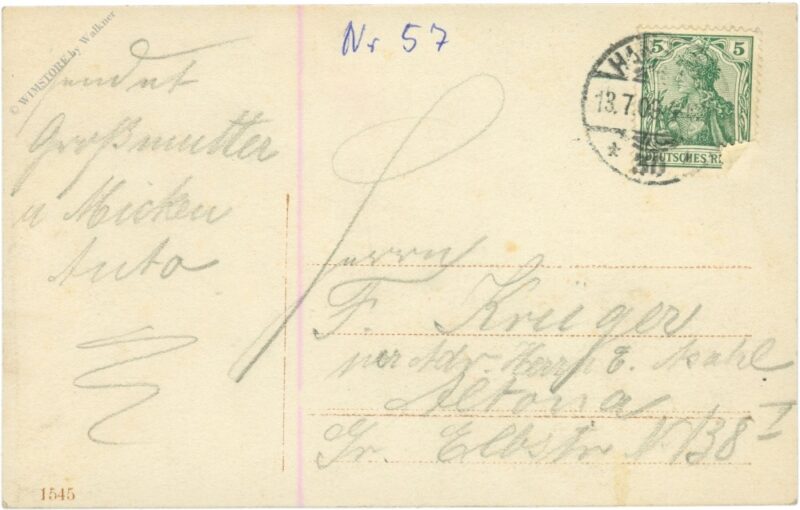 © WIMSTORE by Walkner
Nr 57
sendet
Großmutter
u Micken
Anta
5 5
13.7.0
DEUTSCHES R
Herrn
F. Krüger
per Adr. Herrn E.
Altona
Gr. Elbstr N 138 I
1545